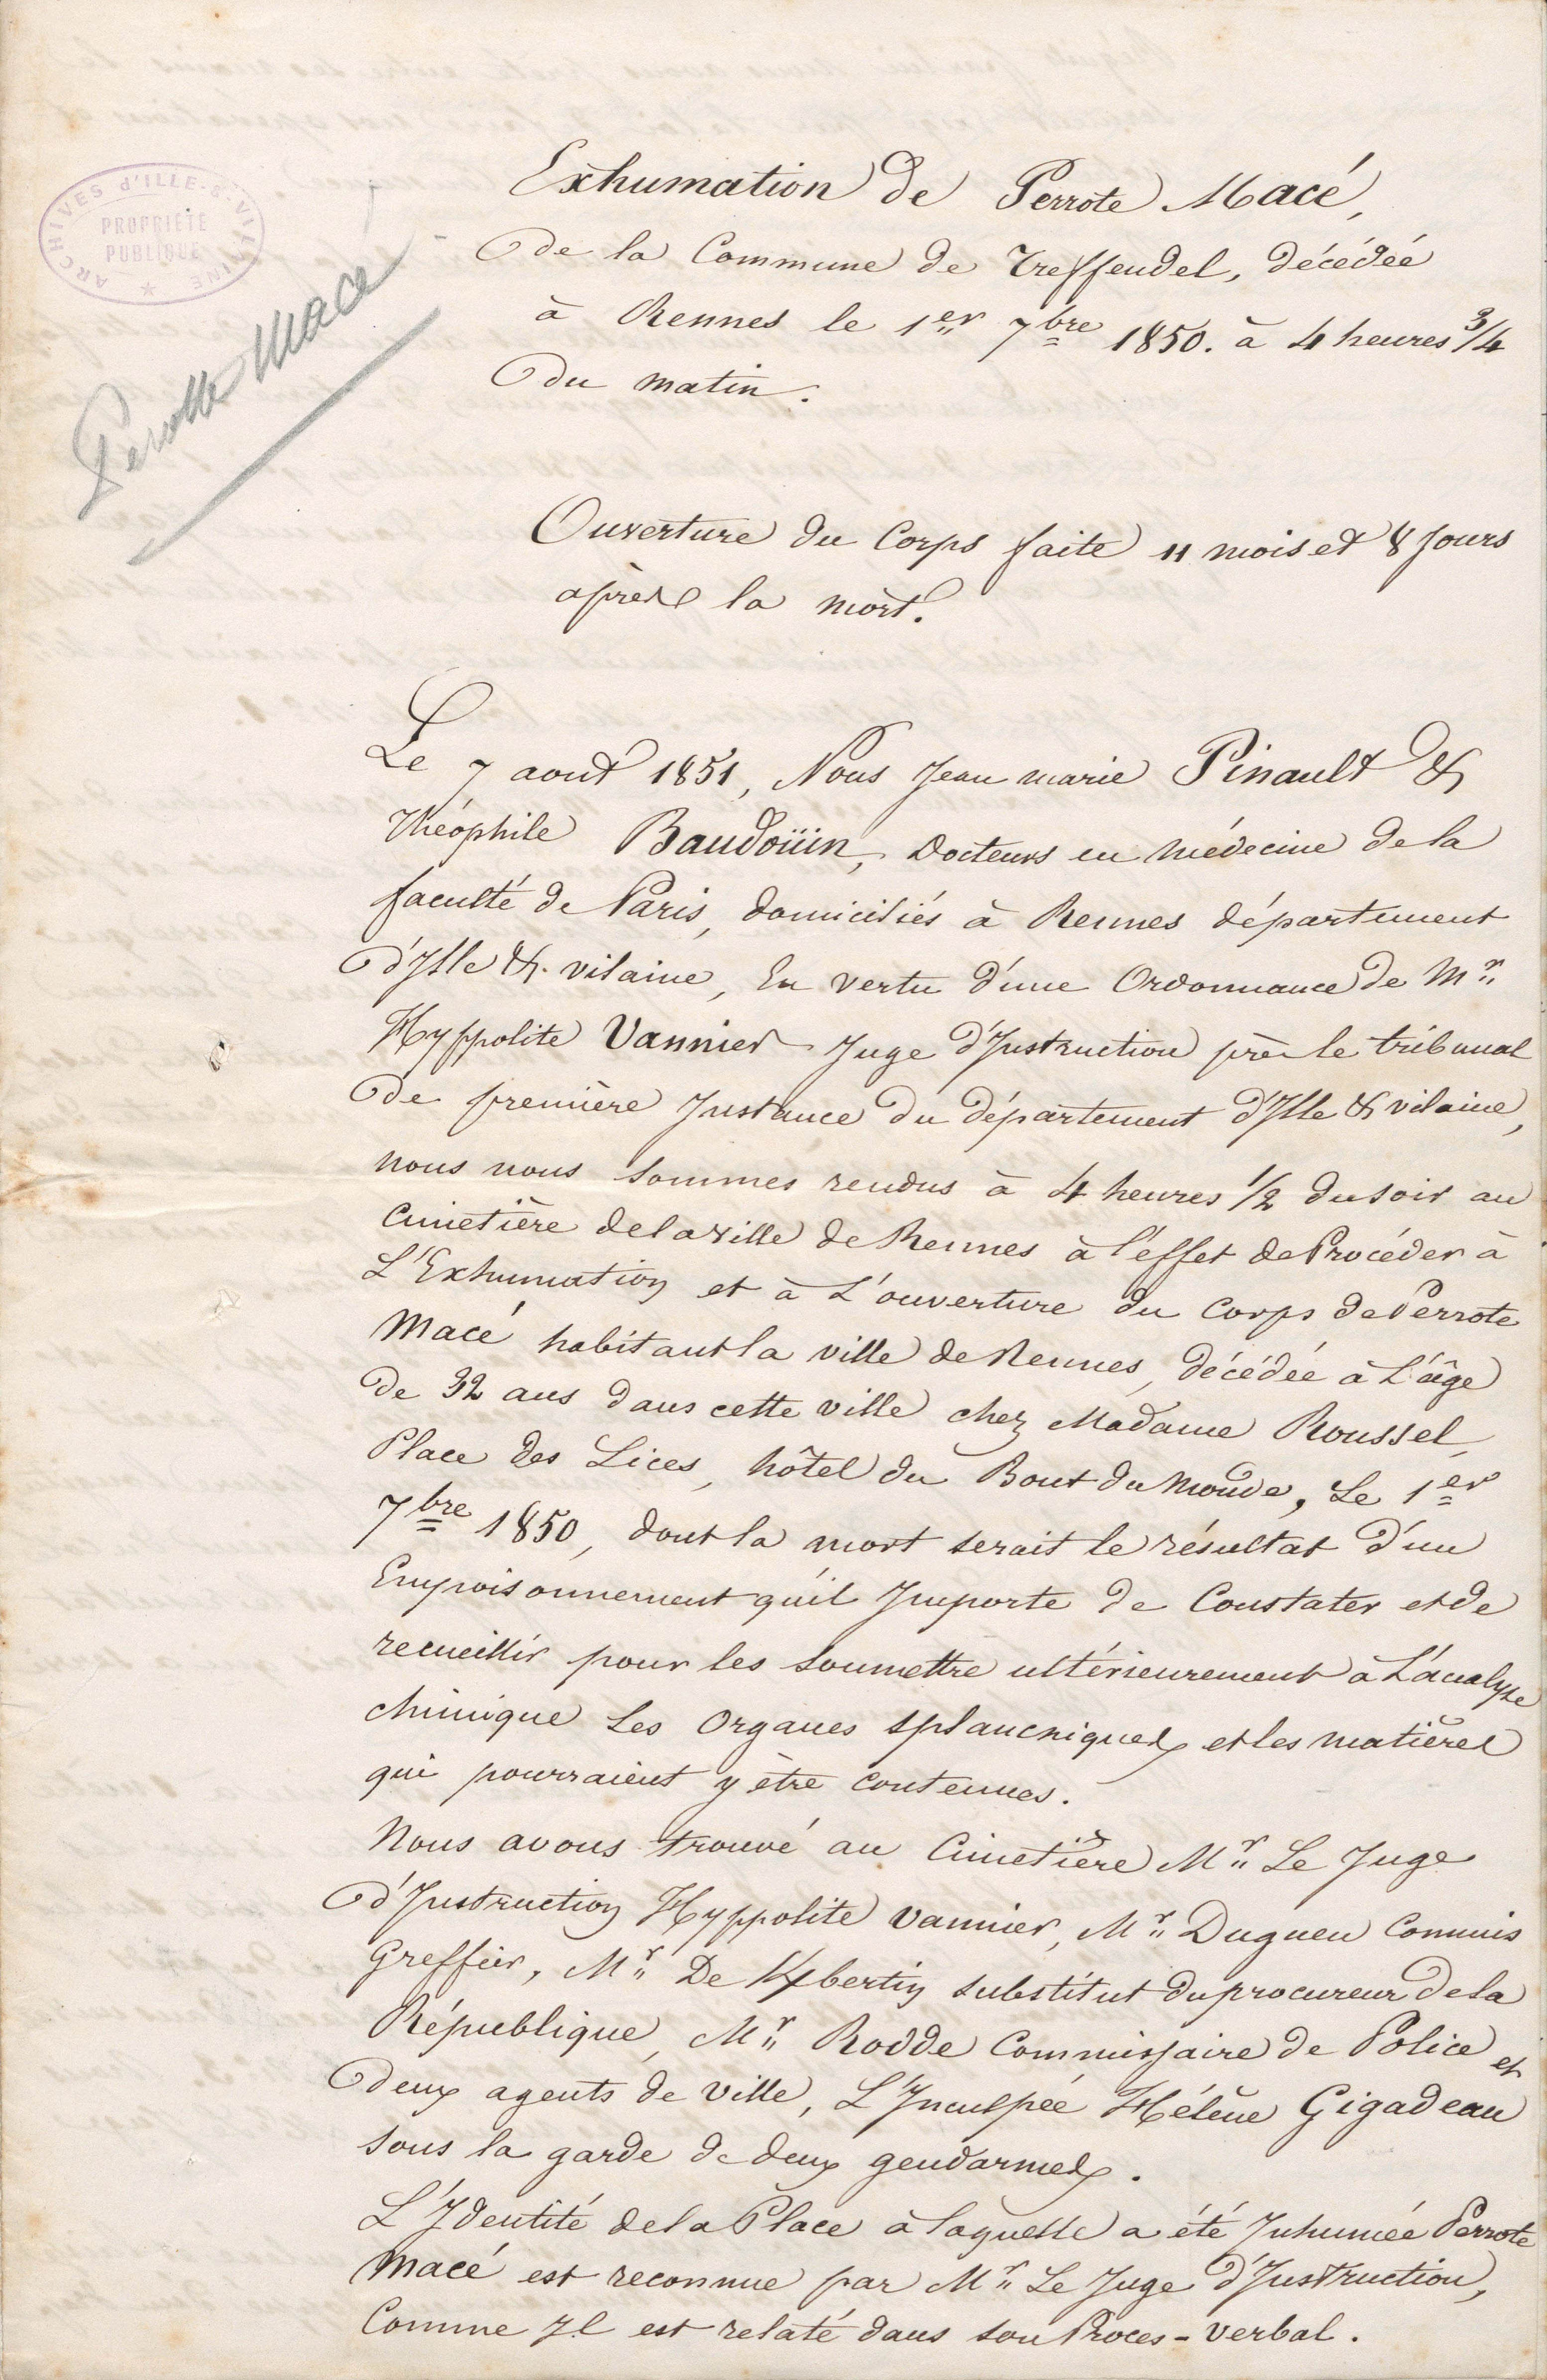 ARCHIVES d'ILLE-&-VILAINE
PROPRIÉTÉ
PUBLIQUE
Perotte Macé
Exhumation de Perrote Macé,
de la Commune de Treffendel, décédée
à Rennes le 1er 7bre 1850. à 4 heures 3/4
du matin.
Ouverture du Corps faite 11 mois et 8 Jours
après la mort.
Le 7 aout 1851, Nous Jean marie Pinault &
Théophile Baudoüin, Docteurs en médecine de la
faculté de Paris, domiciliés à Rennes département
d'Ille & vilaine, En vertu d'une Ordonnance de Mr
Hyppolite Vannier Juge d'Instruction près le tribunal
de première Instance du département d'Ille & vilaine,
nous nous sommes rendus à 4 heures 1/2 du soir au
Cimetière de la ville de Rennes à l'effet de Procéder à
L'Exhumation et à L'ouverture du Corps de Perrote
Macé habitant la ville de Rennes, décédée à L'âge
de 32 ans dans cette ville chez Madame Roussel,
Place des Lices, hôtel du Bout du Monde, Le 1er
7bre 1850, dont la mort serait le résultat d'un
Empoisonnement qu'il Importe de Constater et de
recueillir pour les soumettre ultérieurement à L'analyse
chimique Les Organes splancniques et les matières
qui pourraient y être contenues.
Nous avons trouvé au Cimetière Mr Le Juge
d'Instruction Hyppolite Vannier, Mr Duguen Commis
Greffier, Mr De Kbertin substitut du procureur de la
République, Mr Rodde Commissaire de Police et
deux agents de ville, L'Inculpée Hélène Gigadeau
sous la garde de deux gendarmes.
L'Identité de la Place à laquelle a été Inhumée Perrote
Macé est reconnue par Mr Le Juge d'Instruction,
Comme Il est relaté dans son Proces-verbal.